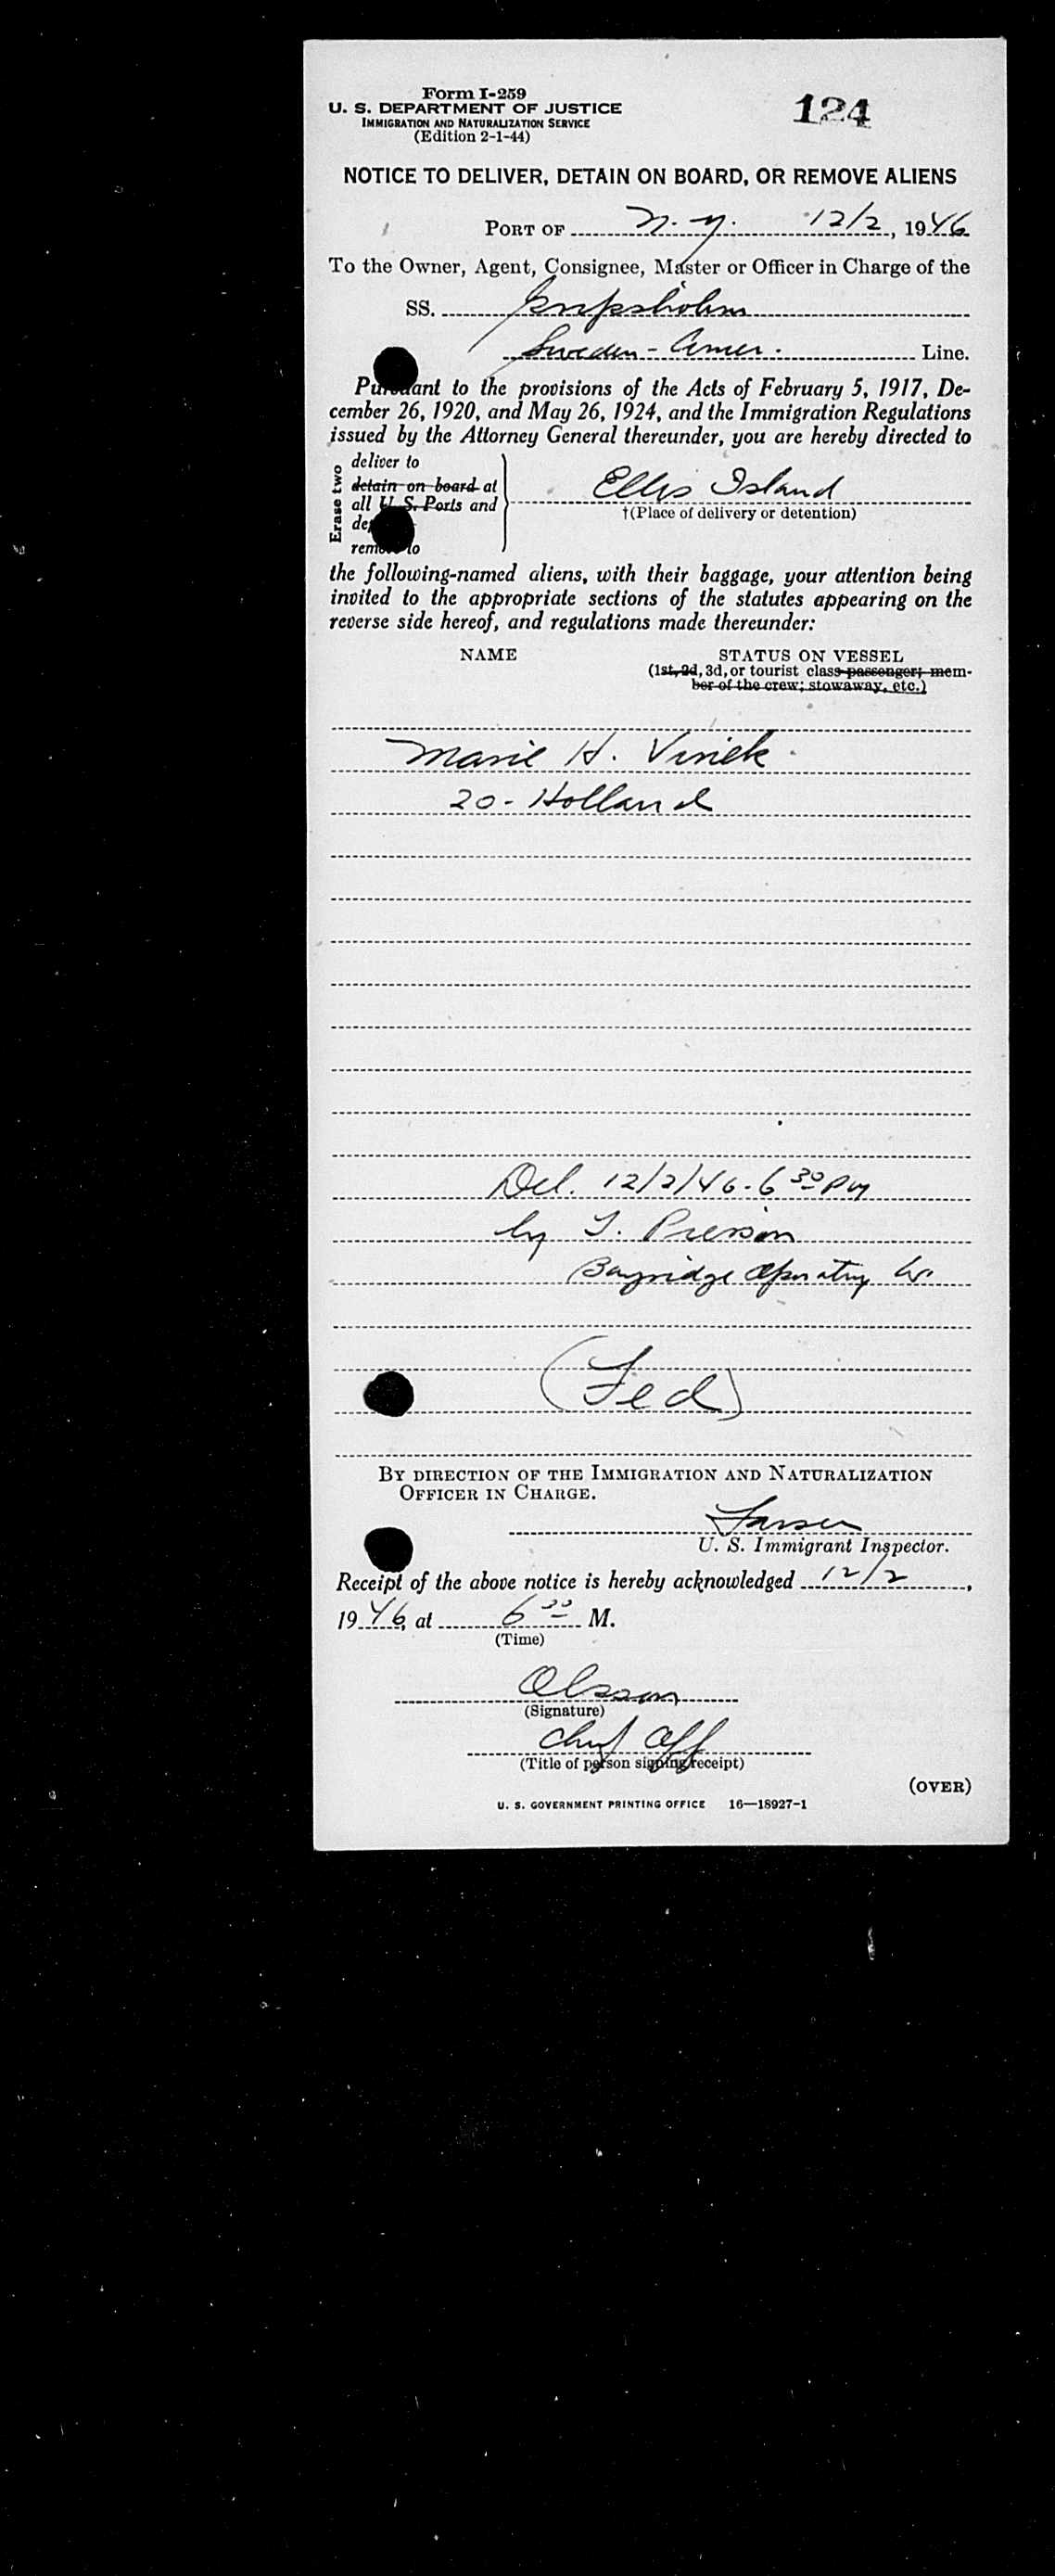 Form I-259
U. S. DEPARTMENT OF JUSTICE
IMMIGRATION AND NATURALIZATION SERVICE
(Edition 2-1-44)
124
NOTICE TO DELIVER, DETAIN ON BOARD, OR REMOVE ALIENS
PORT OF N. Y. 12/2, 1946
To the Owner, Agent, Consignee, Master or Officer in Charge of the
SS. Gripsholm
Sweden - Amer. Line.
Pursuant to the provisions of the Acts of February 5, 1917, De-
cember 26, 1920, and May 26, 1924, and the Immigration Regulations
issued by the Attorney General thereunder, you are hereby directed to
Erase two
deliver to
detain on board at
all U. S. Ports and
remove to
Ellis Island
†(Place of delivery or detention)
the following-named aliens, with their baggage, your attention being
invited to the appropriate sections of the statutes appearing on the
reverse side hereof, and regulations made thereunder:
NAME STATUS ON VESSEL
(1st, 2d, 3d, or tourist class passenger; mem-
ber of the crew; stowaway, etc.)
Marie H. Vinek
20 - Holland
Del. 12/2/46 - 6 30 PM
by T. Pierson
Bayridge Operating Co.
(Fed)
BY DIRECTION OF THE IMMIGRATION AND NATURALIZATION
OFFICER IN CHARGE.
U. S. Immigrant Inspector.
Receipt of the above notice is hereby acknowledged 12/2,
1946, at 6 M.
(Time)
Olsson
(Signature)
Chief Off
(Title of person signing receipt)
(OVER)
U. S. GOVERNMENT PRINTING OFFICE 16—18927-1